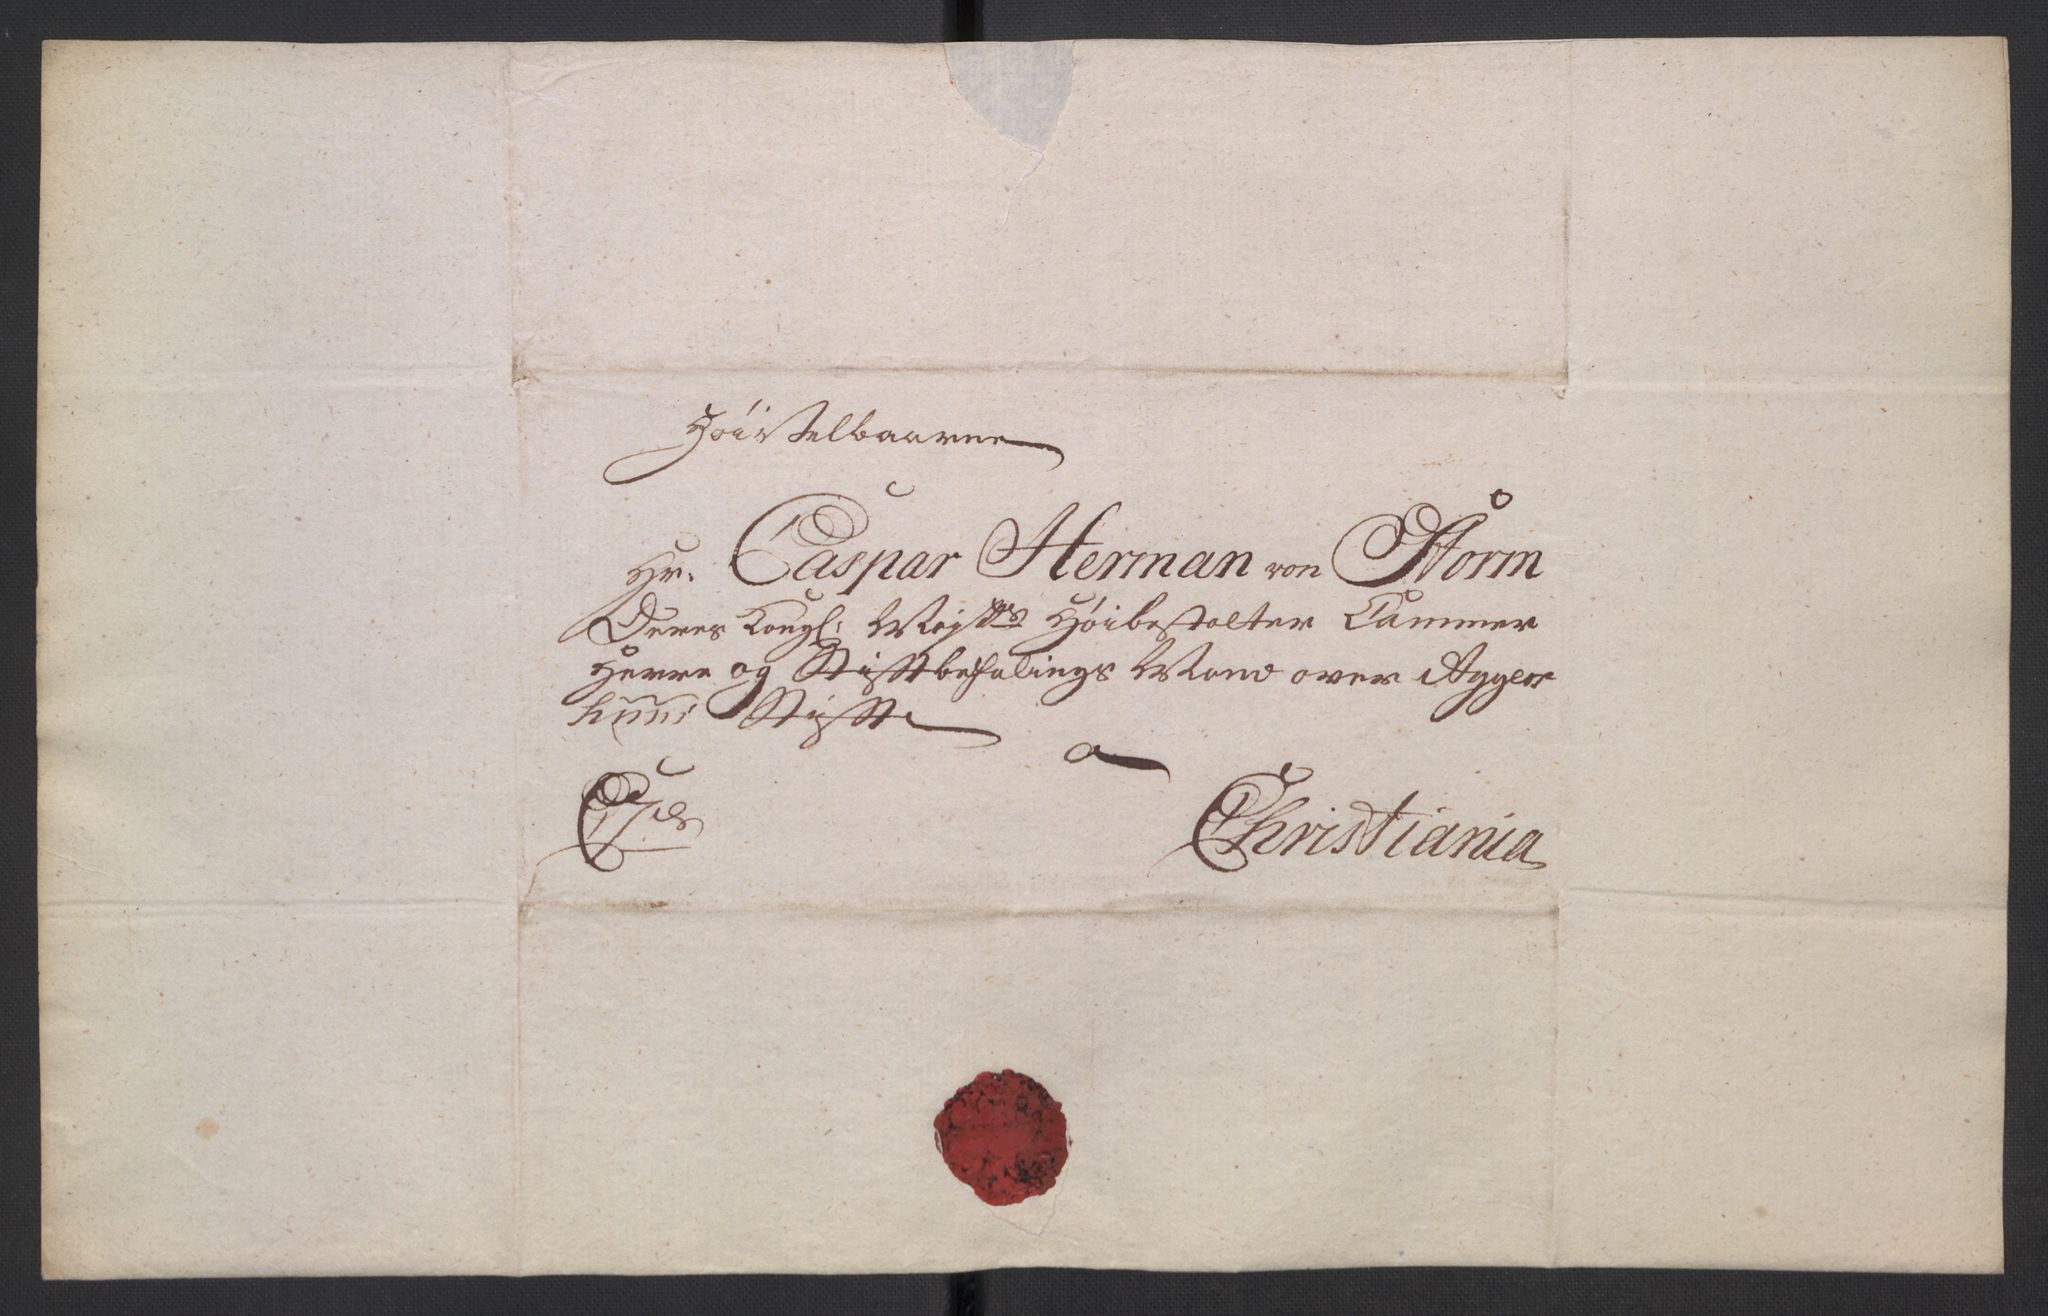 Höivelbaarne
Hr. Caspar Herman von Storm
Deres Kongl: Mayts Höibestalter Cammer
Herre og Stiftbefalings Mand over Agger
huus Stift
a
Christiania